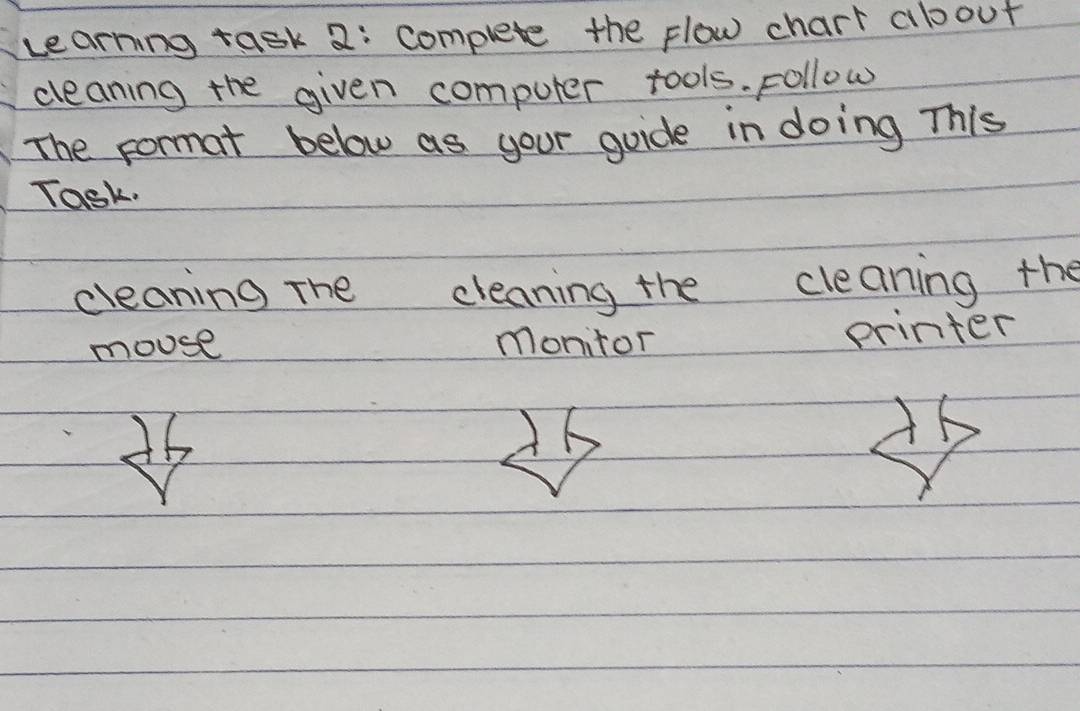 Learning task 2: Complete the Flow chart about
cleaning the given computer tools. Follow
The Format below as your guide in doing This
Task.
cleaning The mouse
cleaning the Monitor
cleaning the printer